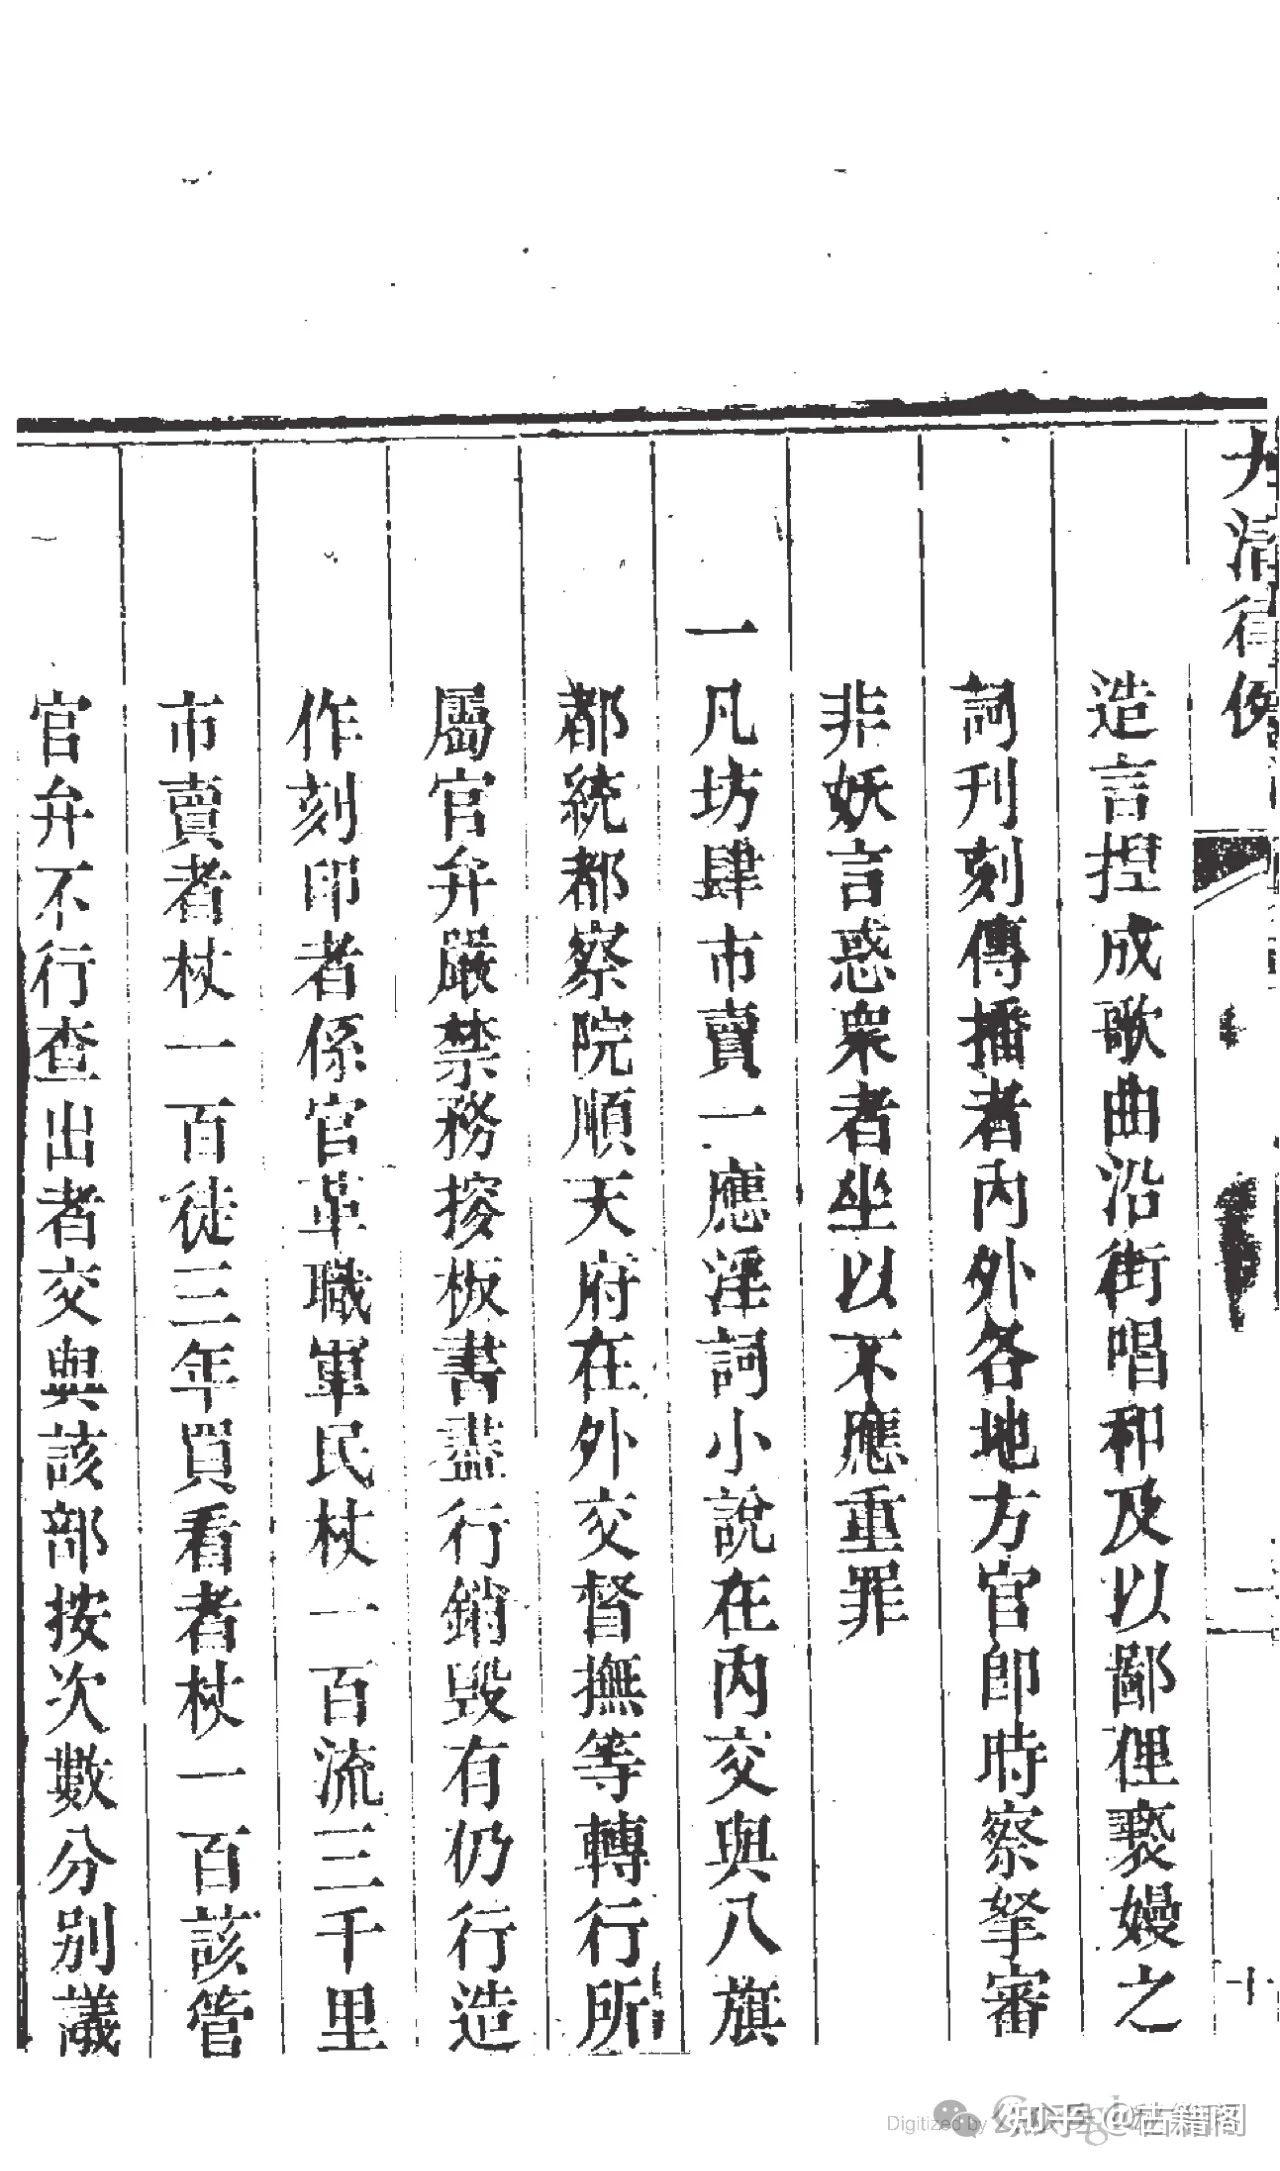 大清律例
二
十
造言捏成歌曲沿街唱和及以鄙俚褻嫚之
詞刊刻傳播者內外各地方官即時察拏審
非妖言惑衆者坐以不應重罪
一凡坊肆市賣一應淫詞小說在內交與八旗
都統都察院順天府在外交督撫等轉行所
屬官弁嚴禁務搜板書盡行銷毀有仍行造
作刻印者係官革職軍民杖一百流三千里
市賣者杖一百徒三年買看者杖一百該管
官弁不行查出者交與該部按次數分別議
Digitized by
知乎 @古籍阁